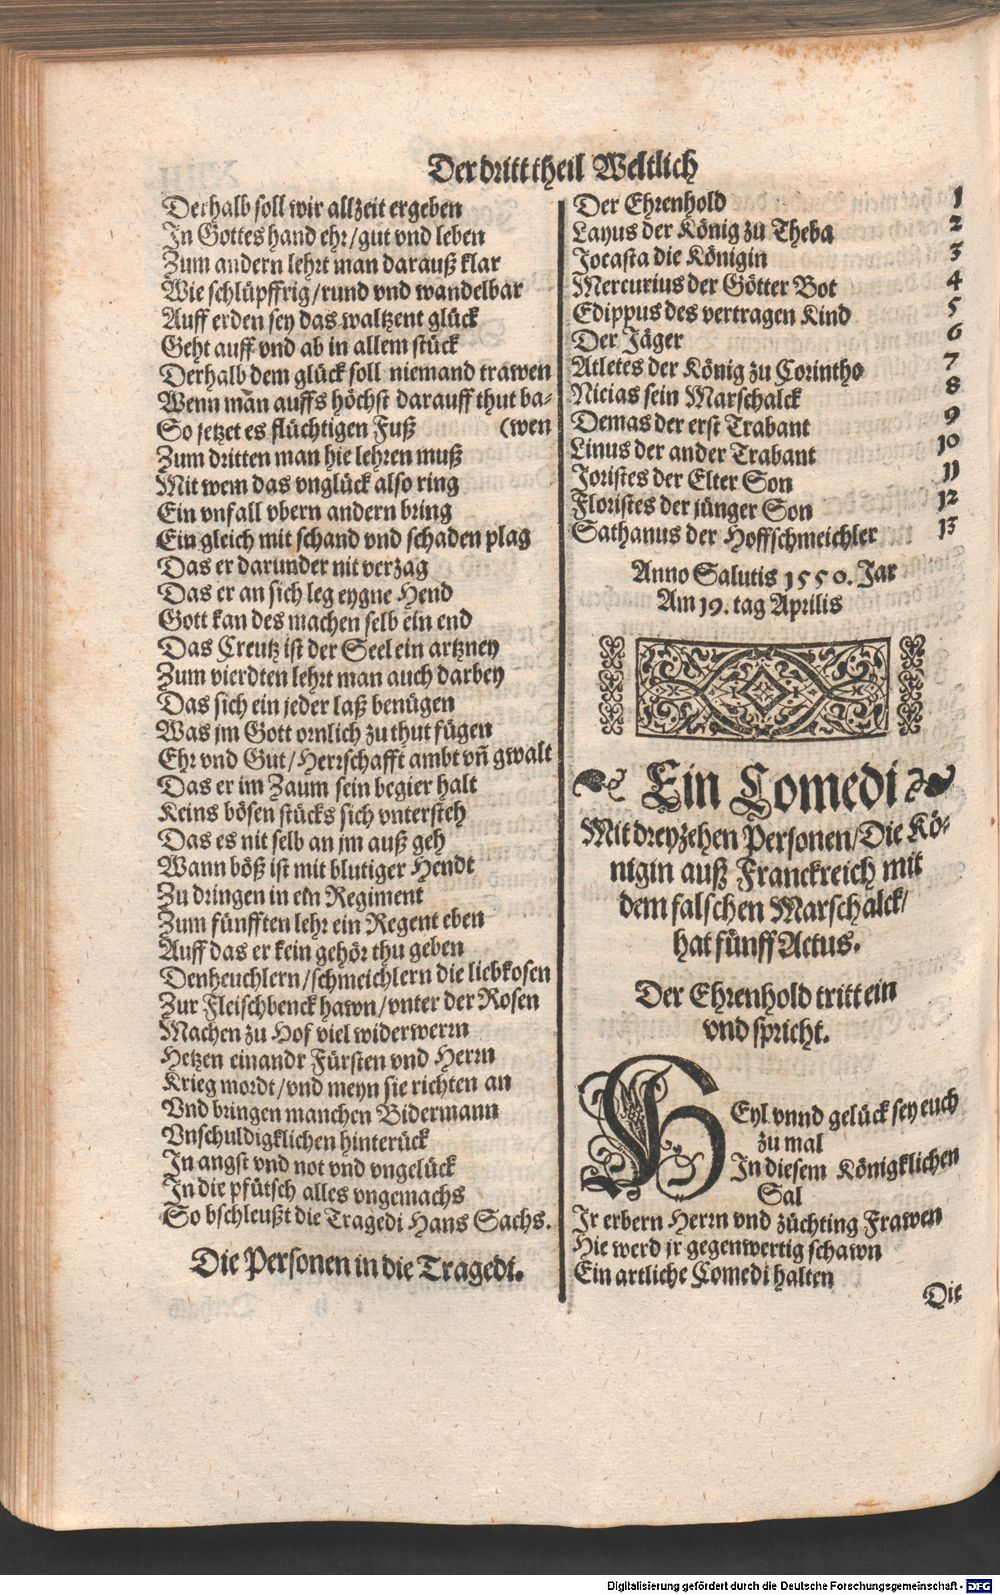 Der dritt theil Weltlich
Derhalb soll wir allzeit ergeben
In Gottes hand ehr/gut vnd leben
Zum andern lehrt man darauß klar
Wie schlüpffrig/rund vnd wandelbar
Auff erden sey das waltzent glück
Geht auff vnd ab in allem stück
Derhalb dem glück soll niemand trawen
Wenn mañ auffs höchst darauff thut ba-
So jetzet es flüchtigen Fuß (wen
Zum dritten man hie lehren muß
Mit wem das vnglück also ring
Ein vnfall vbern andern bring
Ein gleich mit schand vnd schaden plag
Das er darunder nit verzag
Das er an sich leg eygne Hend
Gott kan des machen selb ein end
Das Creutz ist der Seel ein artzney
Zum vierdten lehrt man auch darbey
Das sich ein jeder laß benügen
Was jm Gott ornlich zu thut fügen
Ehr vnd Gut/Herrschafft ambt vñ gwalt
Das er im Zaum sein begier halt
Keins bösen stücks sich vntersteh
Das es nit selb an jm auß geh
Wann böß ist mit blutiger Hendt
Zu dringen in ein Regiment
Zum fünfften lehr ein Regent eben
Auff das er kein gehör thu geben
Den heuchlern/schmeichlern die liebkosen
Zur Fleischbenck hawn/vnter der Rosen
Machen zu Hof viel widerwerrn
Hetzen einandr Fürsten vnd Herrn
Krieg mordt/vnd meyn sie richten an
Vnd bringen manchen Bidermann
Vnschuldigklichen hinterück
In angst vnd not vnd vngelück
In die pfütsch alles vngemachs
So bschleußt die Tragedi Hans Sachs.
Die Personen in die Tragedi.
Der Ehrenhold 1
Layus der König zu Theba 2
Jocasta die Königin 3
Mercurius der Götter Bot 4
Edippus des vertragen Kind 5
Der Jäger 6
Atletes der König zu Corintho 7
Nicias sein Marschalck 8
Demas der erst Trabant 9
Linus der ander Trabant 10
Joristes der Elter Son 11
Floristes der jünger Son 12
Sathanus der Hoffschmeichler 13
Anno Salutis 1550. Jar
Am 19. tag Aprilis
Ein Comedi
Mit dreyzehen Personen/Die Kö-
nigin auß Franckreich mit
dem falschen Marschalck/
hat fünff Actus.
Der Ehrenhold tritt ein
vnd spricht.
HEyl vnnd gelück sey euch
zu mal
In diesem Königklichen
Sal
Ir erbern Herrn vnd züchting Frawen
Hie werd jr gegenwertig schawn
Ein artliche Comedi halten
Die
Digitalisierung gefördert durch die Deutsche Forschungsgemeinschaft - DFG